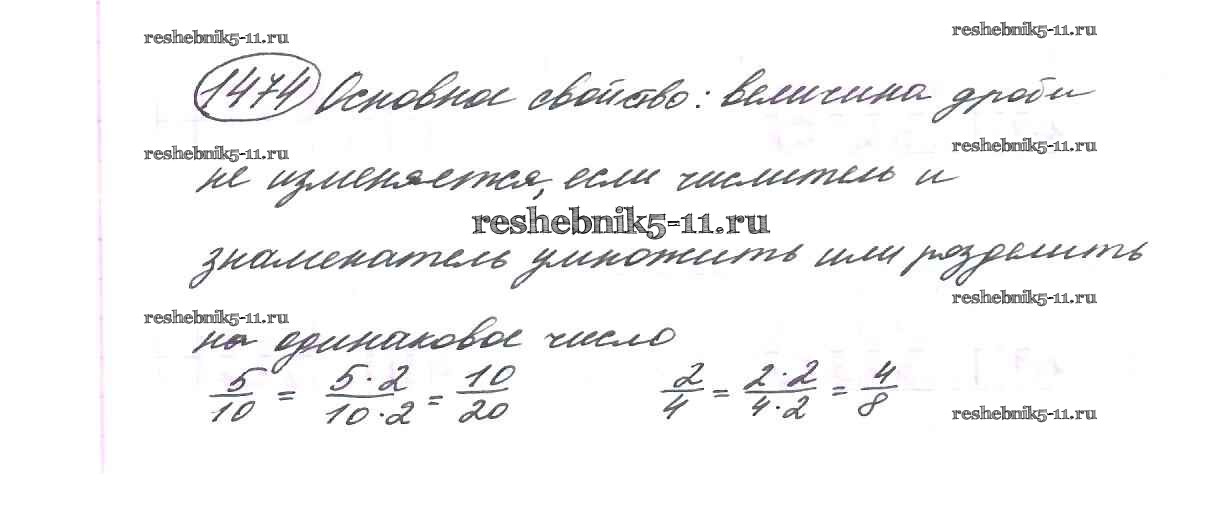 reshebnik5-11.ru reshebnik5-11.ru
1474 Основное свойство: величина дроби
reshebnik5-11.ru reshebnik5-11.ru
не изменяется, если числитель и
reshebnik5-11.ru
знаменатель умножить или разделить
reshebnik5-11.ru
reshebnik5-11.ru
на одинаковое число
5/10 = 5·2/10·2 = 10/20 2/4 = 2·2/4·2 = 4/8
reshebnik5-11.ru